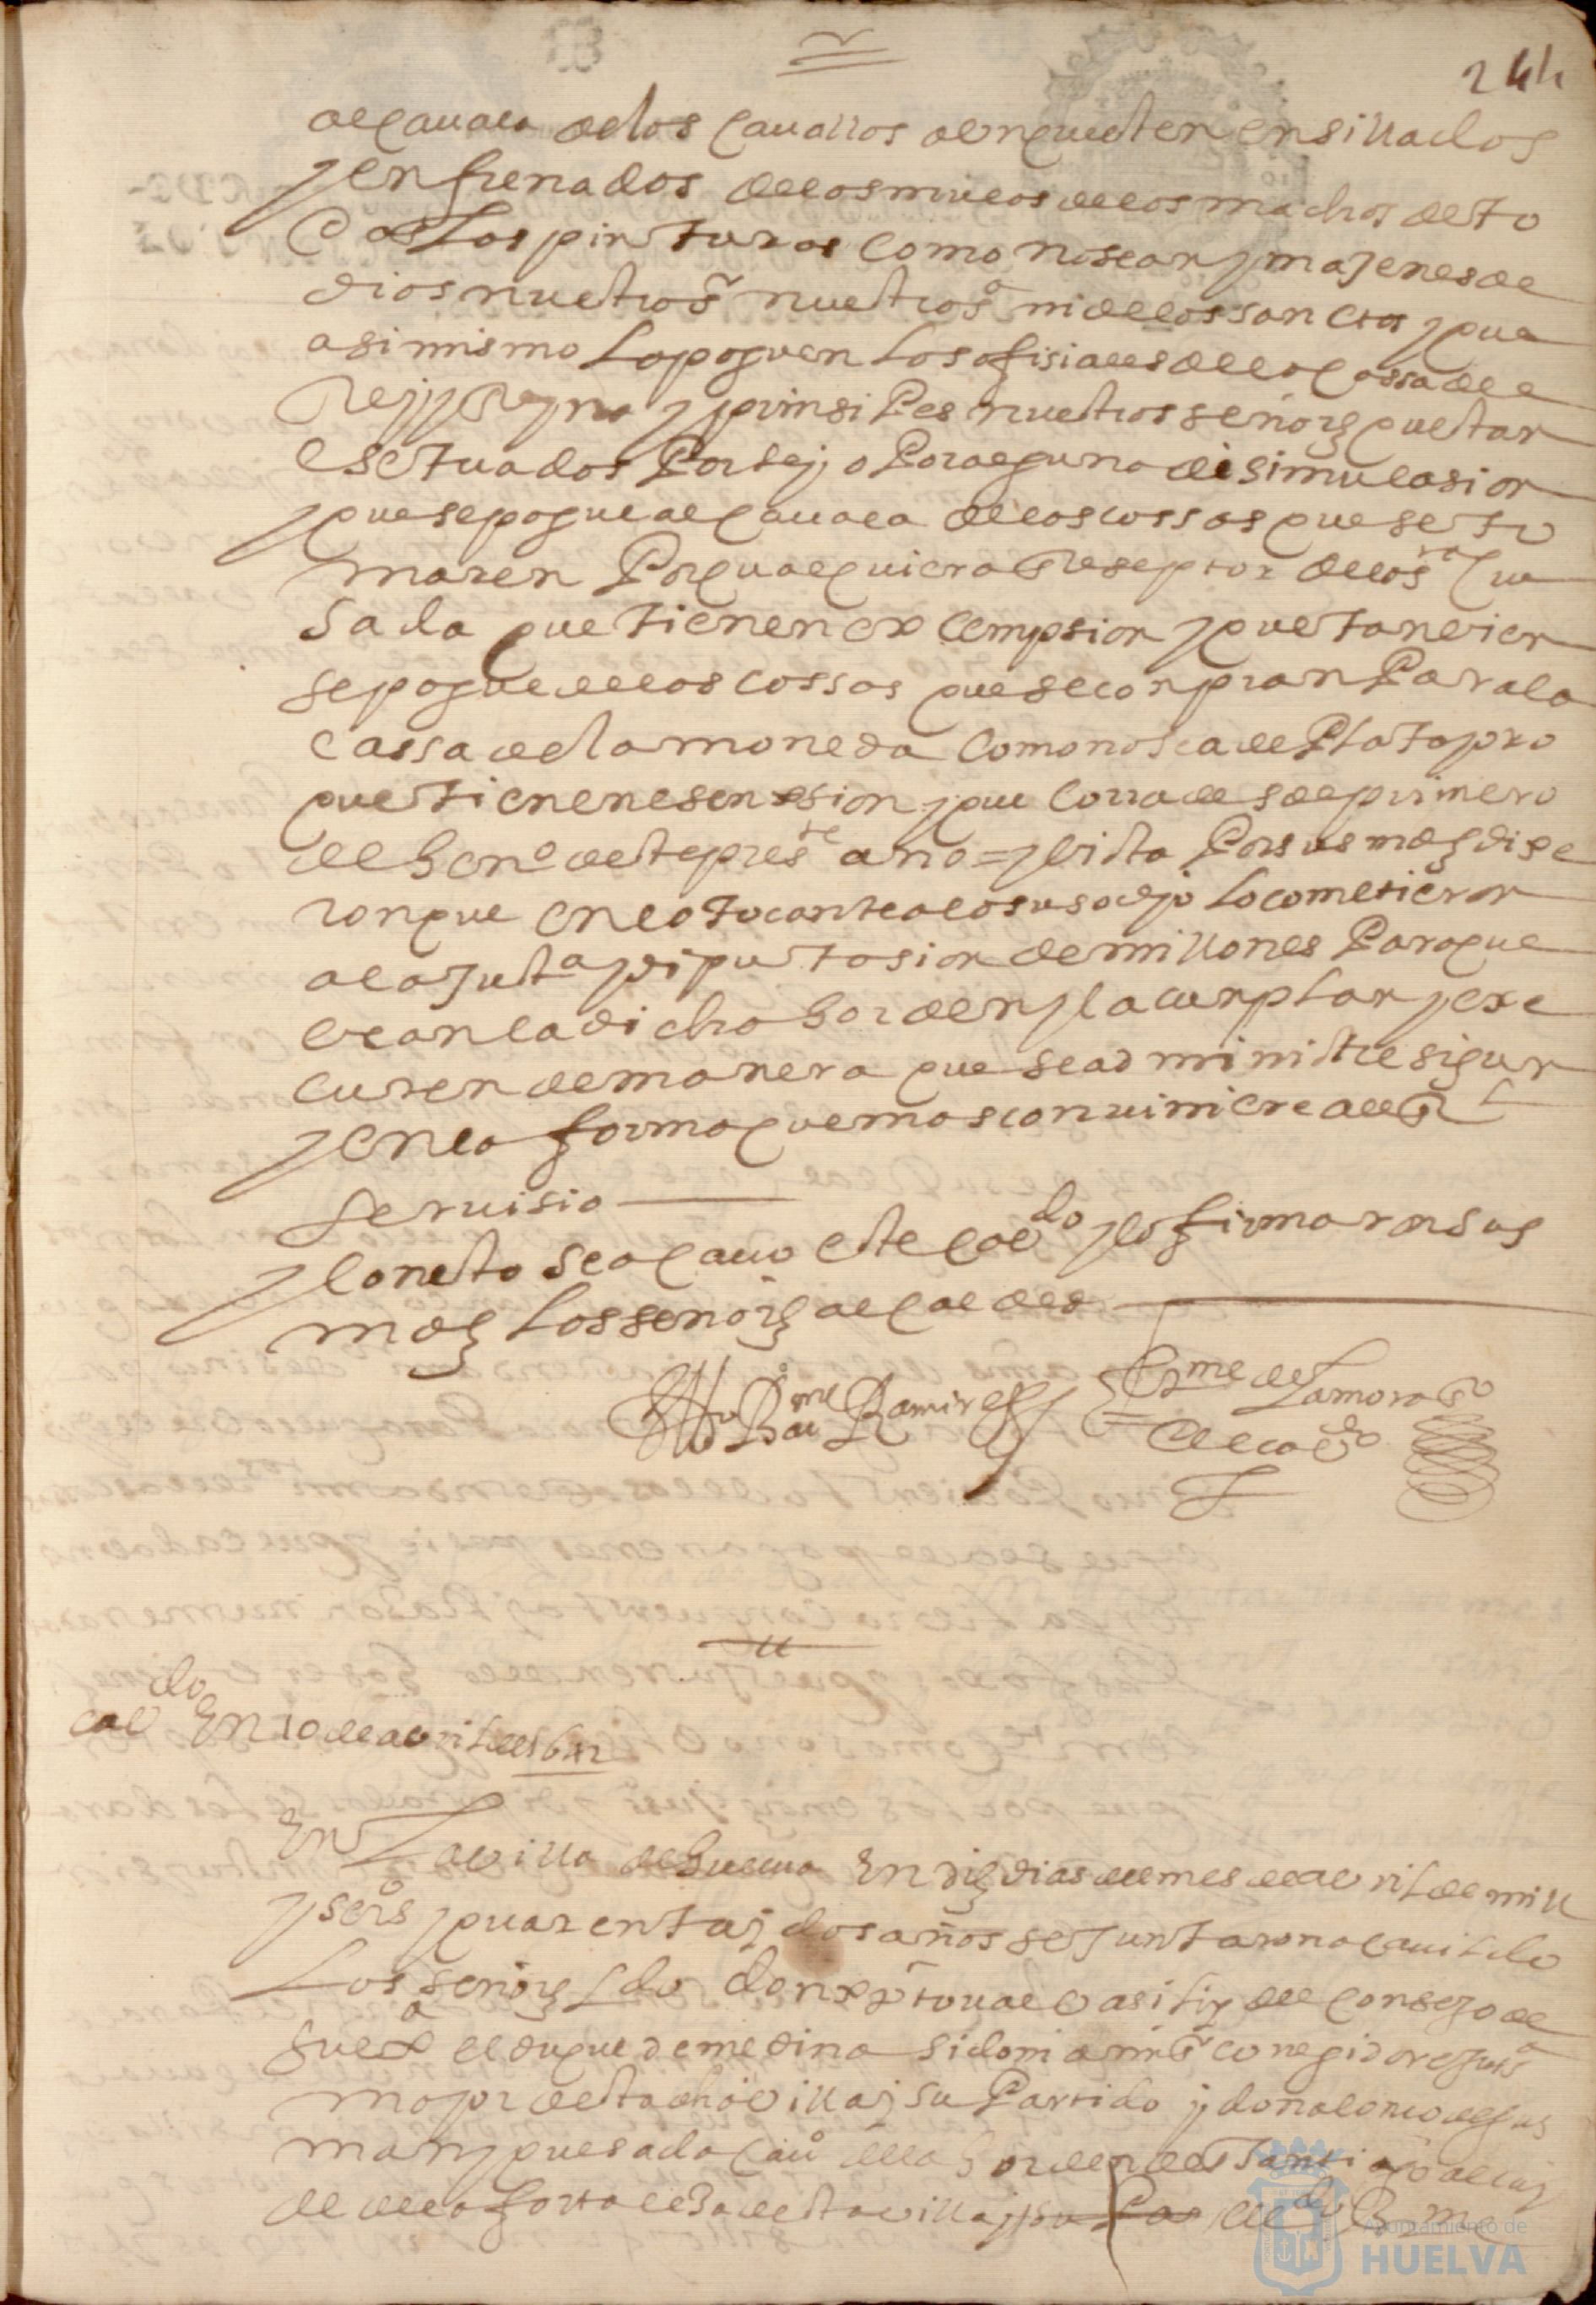 244
alcauala de los cauallos aunque esten ensillados
y enfrenados de los mulos de los machos de to
das las pinturas como no sean ymajenes de
dios nuestro sr nuestra sa ni de los sanctos y que
asi mismo la paguen los ofisiales de la cassa del
Rey y Reyna y prinsipes nuestros señores questan
esetuados Por ley o Por alguna disimulasion
y que se pague alcauala de las cossas que se to
maren Por qualquiera Reseptor de la sta cru
sada que tienen excempsion y que tanvien
se pague de las cossas que se conpran Para la
cassa de la moneda como no sea de Plata pro
que tienen esenpsion y que corra desde primero
de heno deste preste año = y vista Por sus mds dixe
ron que en lo tocante a lo susodho lo cometieron
a la justa y diputasion de millones Para que
vean la dicha horden y la cunplan y exe
cuten de manera que se administre sigun
y en la forma que mas conviniere al Rl
seruisio
y con esto se acauo este cavdo y lo firmaron sus
mds los señores alcaldes
Bme Ramires
Bme de Zamora so
de cavdo
cavdo En 10 de avril de 1642
En La villa de huelua En dies dias del mes de avril de mill
y seiso y quarenta y dos años se juntaron a cauildo
Los señores Ldo don xptoual basilis del consejo de
su exa el duque de medina sidonia mi sr corregidor e justa
mayor desta dha villa y su Partido y don alonso de gus
man y quesada cauo de la horden de Santiago alcay
de de la fortalesa desta villa y su el Ldo Bme
Ayuntamiento de
HUELVA